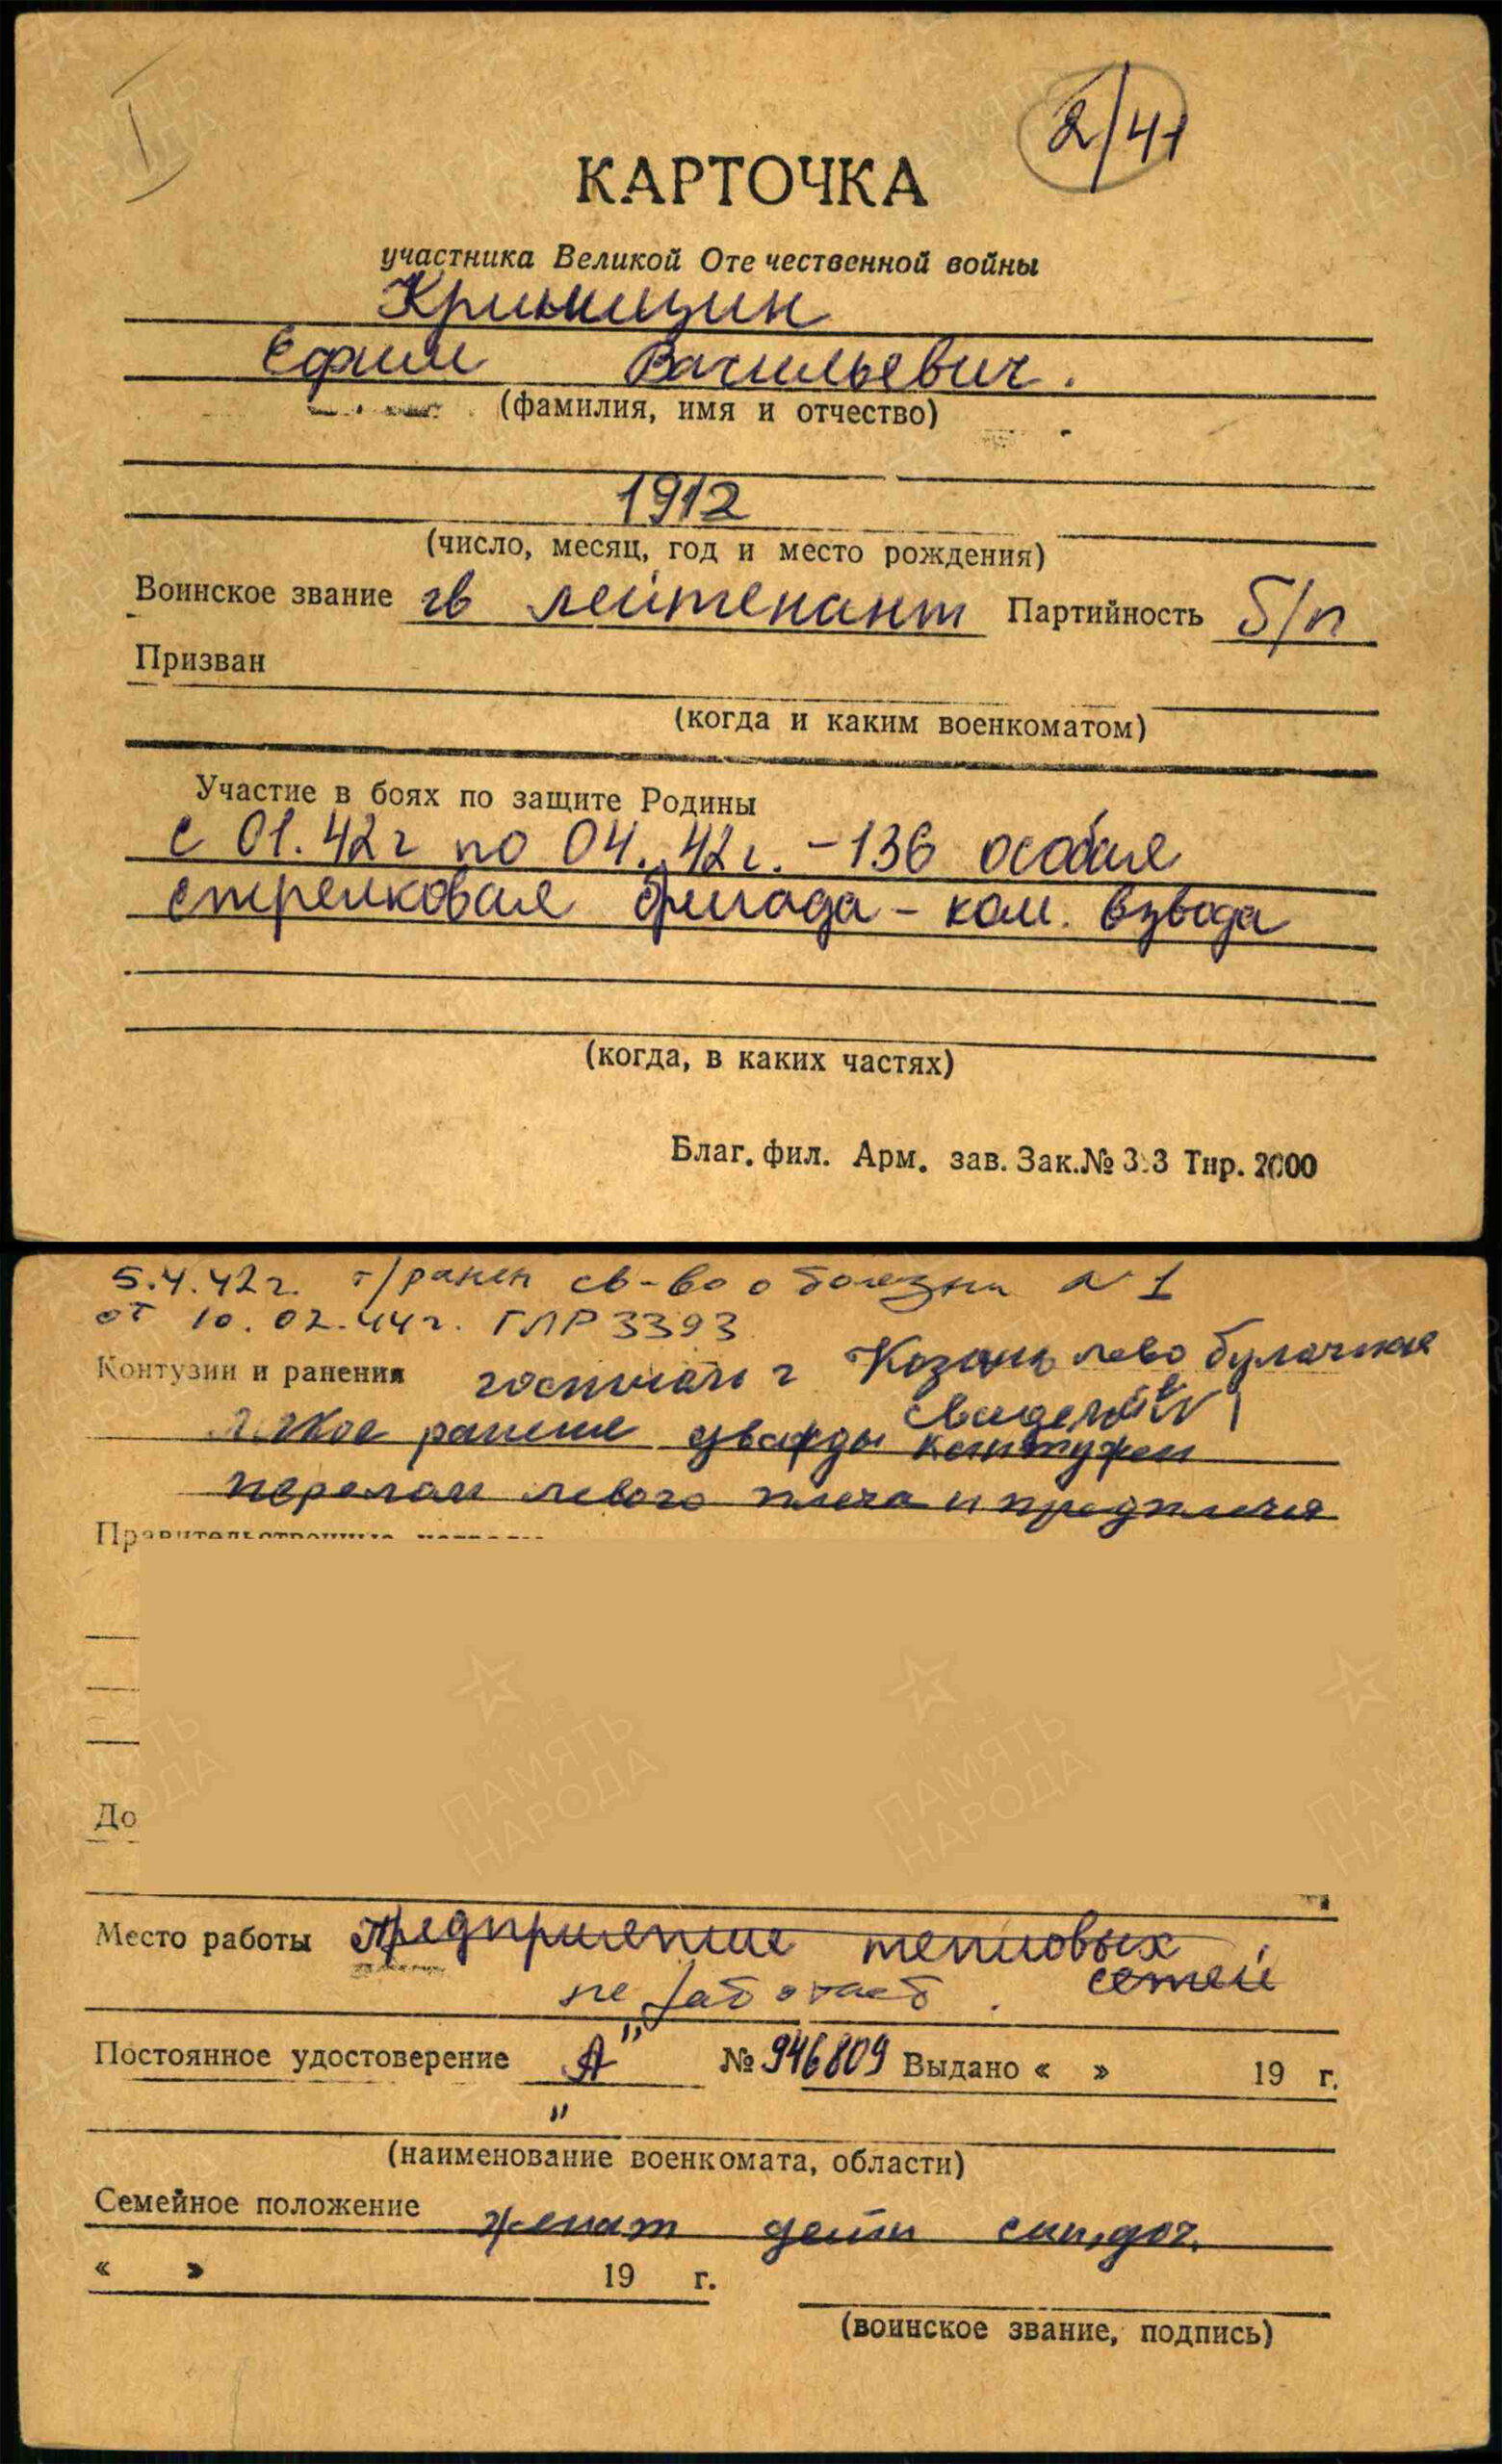 2/41
КАРТОЧКА
участника Великой Оте чественной войны
Криницин
Ефим Васильевич.
(фамилия, имя и отчество)
1912
(число, месяц, год и место рождения)
Воинское звание гв лейтенант Партийность Б/п
Призван
(когда и каким военкоматом)
Участие в боях по защите Родины
с 01.42г по 04.42г. - 136 особая
стрелковая бригада - ком. взвода
(когда, в каких частях)
Благ. фил. Арм. зав. Зак.№ 3 3 Тир. 2000
5.4.42г. т/ранен св-во о болезни № 1
от 10.02.44г. ГЛР 3393
Контузии и ранения госпиталь г Казань лево булачная
легкое ранение дважды контужен
перелом левого плеча и предплечья
Место работы предприятие тепловых
не работает. сетей
Постоянное удостоверение "А" № 946809 Выдано « » 19 г.
(наименование военкомата, области)
Семейное положение женат дети сын, доч.
« » 19 г.
(воинское звание, подпись)
ПАМЯТЬ НАРОДА